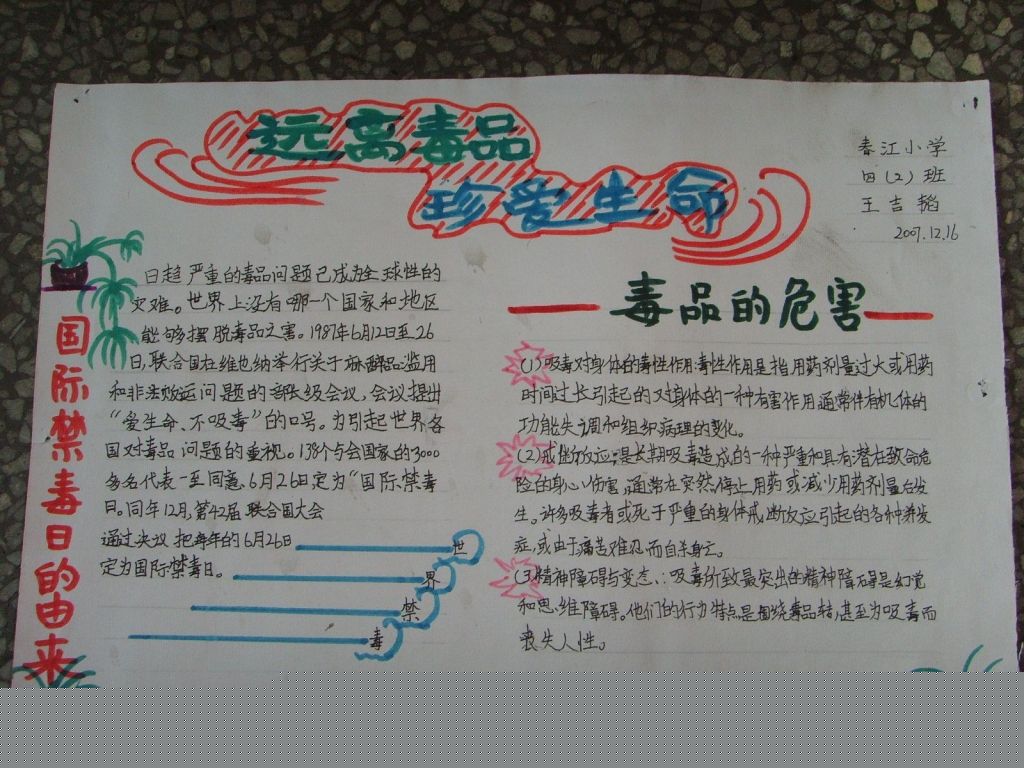 远离毒品
珍爱生命
春江小学
四(2)班
王吉韬
2007.12.16
国际禁毒日的由来
日趋严重的毒品问题已成为全球性的
灾难。世界上没有哪一个国家和地区
能够摆脱毒品之害。1987年6月12日至26
日,联合国在维也纳举行关于麻醉品滥用
和非法贩运问题的部长级会议,会议提出
“爱生命、不吸毒”的口号。为引起世界各
国对毒品问题的重视。138个与会国家的3000
多名代表一至同意,6月26日定为“国际禁毒
日。同年12月,第42届联合国大会
通过决议把每年的6月26日
定为国际禁毒日。
世
界
禁
毒
毒品的危害
(1)吸毒对身体的毒性作用:毒性作用是指用药剂量过大或用药
时间过长引起的对身体的一种有害作用通常伴有机体的
功能失调和组织病理的变化。
(2)戒断反应:是长期吸毒造成的一种严重和具有潜在致命危
险的身心伤害,通常在突然停止用药或减少用药剂量后发
生。许多吸毒者或死于严重的身体戒断反应引起的各种并发
症,或由于痛苦难忍而自杀身亡。
(3)精神障碍与变态:吸毒所致最突出的精神障碍是幻觉
和思维障碍。他们的行为特点是围绕毒品转,甚至为吸毒而
丧失人性。